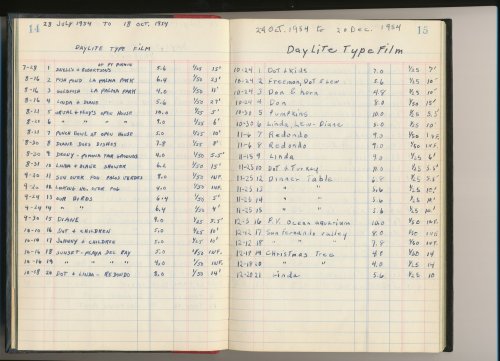 14
28 July 1954 TO 18 OCT. 1954
DAYLITE TYPE FILM
7-28 1 SHELLY & ROBERTSONS 5.6 1/25 15'
8-16 2 FISH POND LA PALMA PARK 6.4 1/50 25'
8-16 3 GOLDFISH LA PALMA PARK 4.0 1/50 10'
8-16 4 LINDA & DIANE 5.6 1/50 27'
8-21 5 OPEN HOUSE 10.0 1/25 5'
8-21 6 " " " " 9.0 1/25 6'
8-21 7 PUNCH BOWL AT OPEN HOUSE 5.0 1/25 10'
8-30 8 DIANE DOES DISHES 7.8 1/25 8'
8-30 9 4.0 1/50 5.5'
8-31 10 LINDA & DIANE SHOWER 4.0 1/50 15'
9-20 11 SUN OVER FOG PALOS VERDES 8.0 1/50 INF.
9-20 12 LOOKING OVER FOG 4.0 1/50 INF.
9-24 13 OUR BIRDS 6.4 1/50 5'
9-24 14 " " 4.0 1/50 6'
9-30 15 DIANE 9.0 1/25 7.5'
10-10 16 SUE & CHILDREN 5.0 1/25 10'
10-10 17 JOHNNY & CHILDREN 5.0 1/25 10'
10-16 18 SUNSET - PLAYA DEL REY 5.0 1/50 INF.
10-16 19 " " " " 4.0 1/50 INF.
10-18 20 DOT & LINDA - REDONDO 8.0 1/50 14'
24 Oct. 1954 to 20 Dec. 1954
15
Daylite Type Film
10-24 1 Dot & Kids 7.0 1/25 7'
10-24 2 Freeman, Dot & Lew 5.6 1/25 10'
10-24 3 Don & horn 4.8 1/25 10'
10-24 4 Don 8.0 1/50 15'
10-30 5 Pumpkins 10.0 1/25 5.5'
10-30 6 Linda, Lew - Diane 5.0 1/25 10'
11-6 7 Redondo 9.0 1/50 INF.
11-6 8 Redondo 9.0 1/50 INF.
11-15 9 Linda 9.0 1/25 6'
11-25 10 Dot & Turkey 11.0 1/25 5.5'
11-25 12 Dinner Table 6.8 1/25 5.5'
11-25 13 " " 5.6 1/25 10'
11-25 14 " " 5.6 1/25 10'
11-25 15 " " 5.6 1/25 10'
12-5 16 P.V. Ocean aquarium 10.0 1/50 INF.
12-12 17 San Fernando Valley 8.0 1/50 INF.
12-12 18 " " " 7.8 1/50 INF.
12-19 19 Christmas Tree 4.8 1/50 14
12-18 20 " " 4.0 1/25 14
12-20 21 Linda 5.6 1/25 10